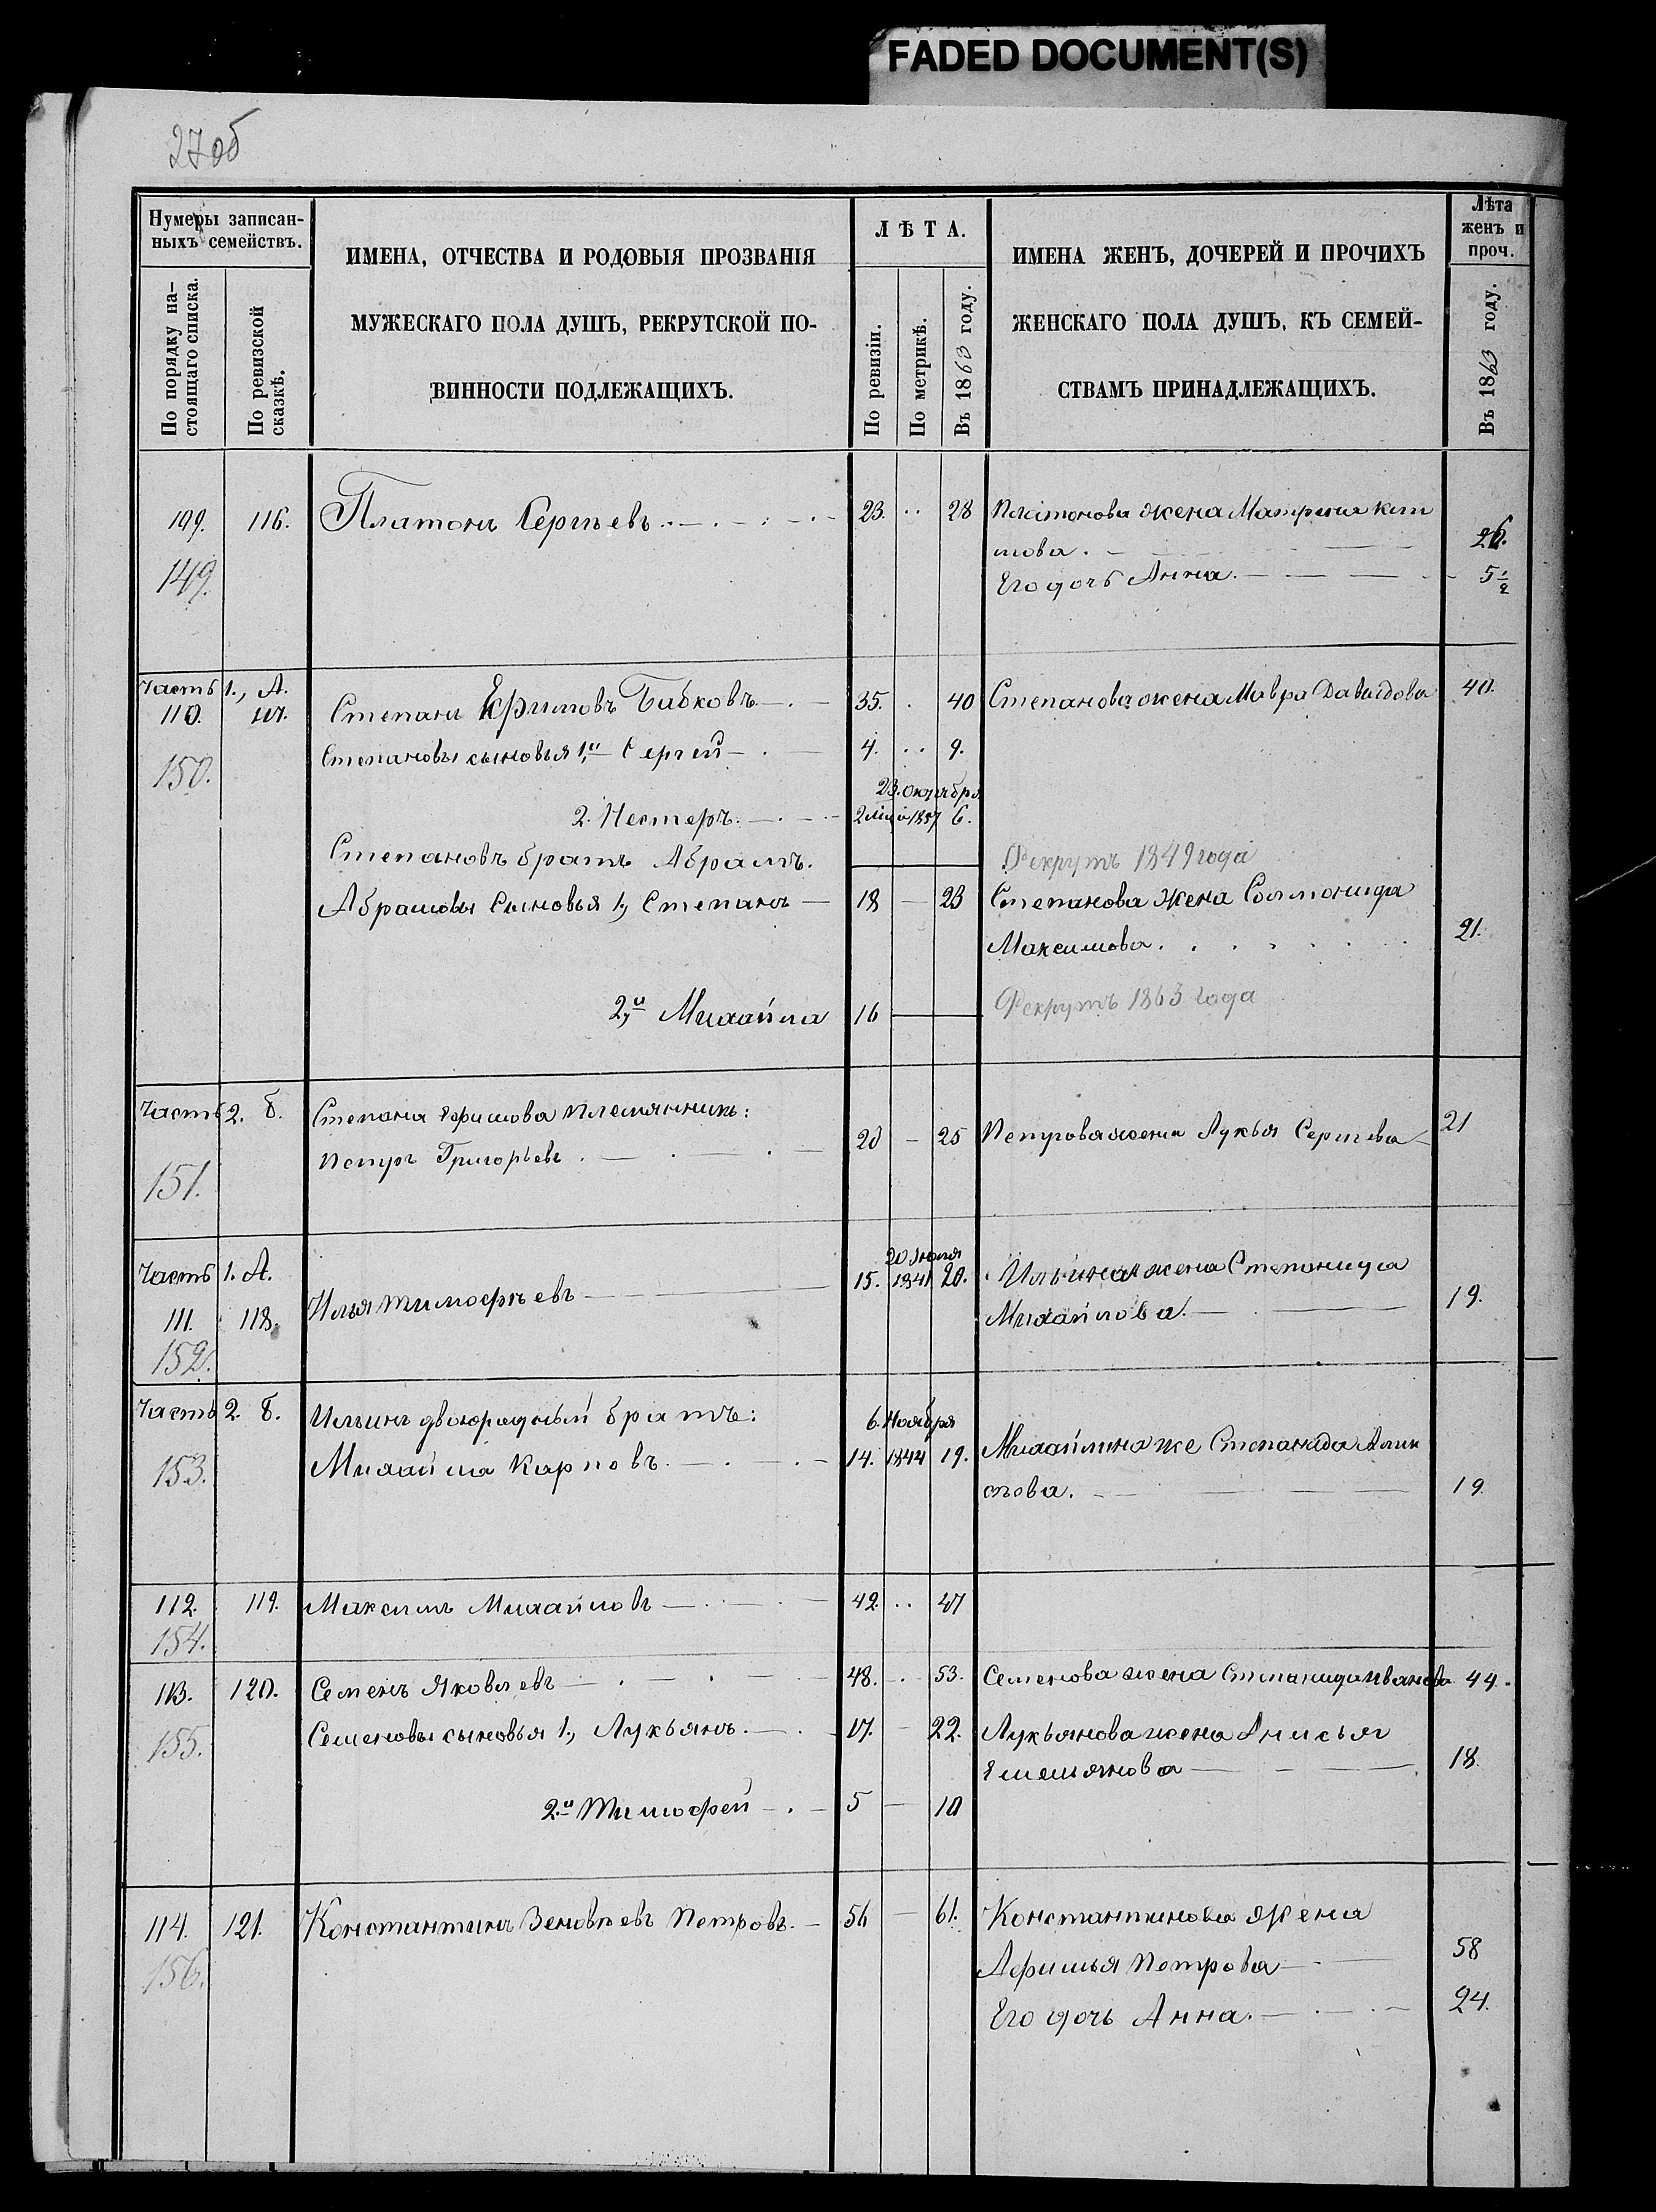 FADED DOCUMENT(S)
27об
Нумеры записан-
ныхъ семействъ.
По порядку на-
стоящаго списка.
По ревизской
сказкѣ.
ИМЕНА, ОТЧЕСТВА И РОДОВЫЯ ПРОЗВАНІЯ
МУЖЕСКАГО ПОЛА ДУШЪ, РЕКРУТСКОЙ ПО-
ВИННОСТИ ПОДЛЕЖАЩИХЪ.
ЛѢТА.
По ревизіи.
По метрикѣ.
Въ 1863 году.
ИМЕНА ЖЕНЪ, ДОЧЕРЕЙ И ПРОЧИХЪ
ЖЕНСКАГО ПОЛА ДУШЪ, КЪ СЕМЕЙ-
СТВАМЪ ПРИНАДЛЕЖАЩИХЪ.
Лѣта
женъ и
проч.
Въ 1863 году.
109. 116. Платонъ Сергѣевъ 23. 28 Платонова жена Матрена
това. 26.
149. Его дочь Анна. 5 1/2
Часть 1., А.
110. 117. Степанъ Ефимовъ Бабковъ 35. 40 Степанова жена Мавра Давыдова 40.
Степановы сыновья 1,й Сергей 4. 9.
150.
23. октября
2. Нестеръ. 1857 6.
Степановъ братъ Абрамъ. Рекрутъ 1849 года
Абрамовы Сыновья 1, Степанъ 18 23 Степанова жена Соломонида
Максимова. 21.
2,й Михайла 16 Рекрутъ 1863 года
Часть 2. б. Степана Ефимова племянникъ:
Петръ Григорьевъ. 20 25 Петрова жена Лукья Сергѣева 21
151.
Часть 1. А. 20 Июля
15. 1841 20. Ильина жена Степанида
111. 118. Илья Тимофѣевъ
Михайлова. 19.
152.
Часть 2. б. Ильинъ двоюродный братъ: 6. Ноября
153. Михайла Карповъ. 14. 1844 19. Михайлина же Степанида
това. 19.
112. 119. Максимъ Михайловъ 42. 47
154.
113. 120. Семенъ Яковлевъ 48. 53. Семенова жена Степанида Иванова 44.
155. Семеновы сыновья 1, Лукьянъ. 17. 22. Лукьянова жена Анисья
Емельянова 18.
2.й Тимофей 5 10
114. 121. Константинъ Зеновьевъ Петровъ. 56 61. Константинова жена
156. Афимья Петрова 58
Его дочь Анна. 24.